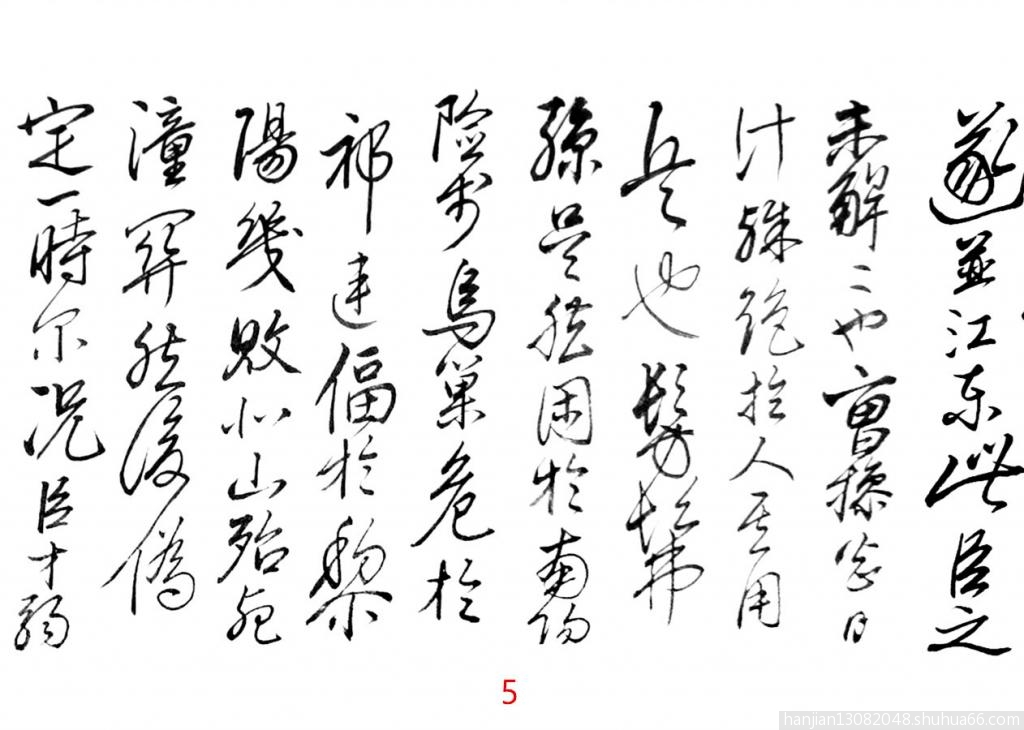 遂並江東此臣之
未解二也曹操智
計殊絕於人其用
兵也髣髴
孫吳然困於南陽
險於烏巢危於
祁連偪於黎
陽幾敗北山殆死
潼關然後偽
定一時尔況臣才弱
5
hanjian13082048.shuhua66.com